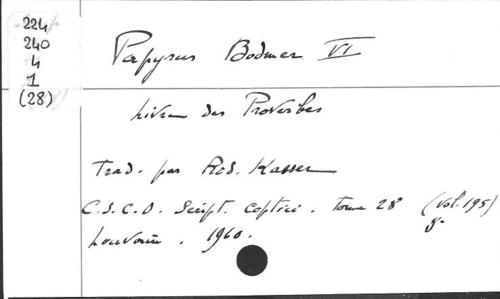 224
240
4
1
(28)
Papyrus Bodmer VI
Livre des Proverbes
Trad. par Rod. Kasser
C.S.C.O. Script. Coptici. Tome 28 (Vol. 195)
Louvain. 1960.